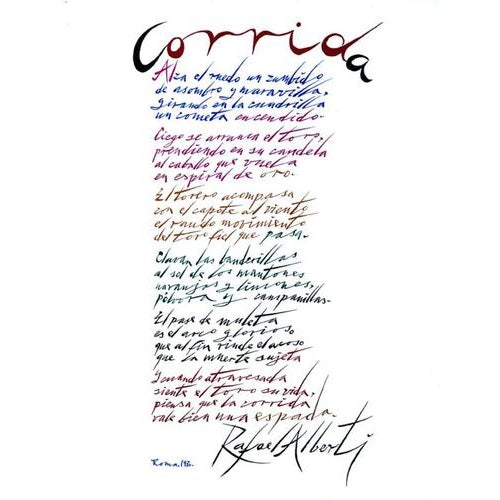 Corrida
Alza el ruedo un zumbido
de asombro y maravilla,
girando en la cuadrilla
un cometa encendido.
Ciego se arranca el toro,
prendiendo en su candela
al caballo que vuela
en espiral de oro.
El torero acompasa
con el capote al viento
el raudo movimiento
del toro fiel que pasa.
Clavan las banderillas
al sol de los mantones
naranjos y limones,
pólvora y campanillas.
El pase de muleta
es el arco glorioso
que al fin rinde el acoso
que la muerte sujeta
Y cuando atravesada
siente el toro su vida,
piensa que la corrida
vale bien una espada.
Rafael Alberti
Roma,